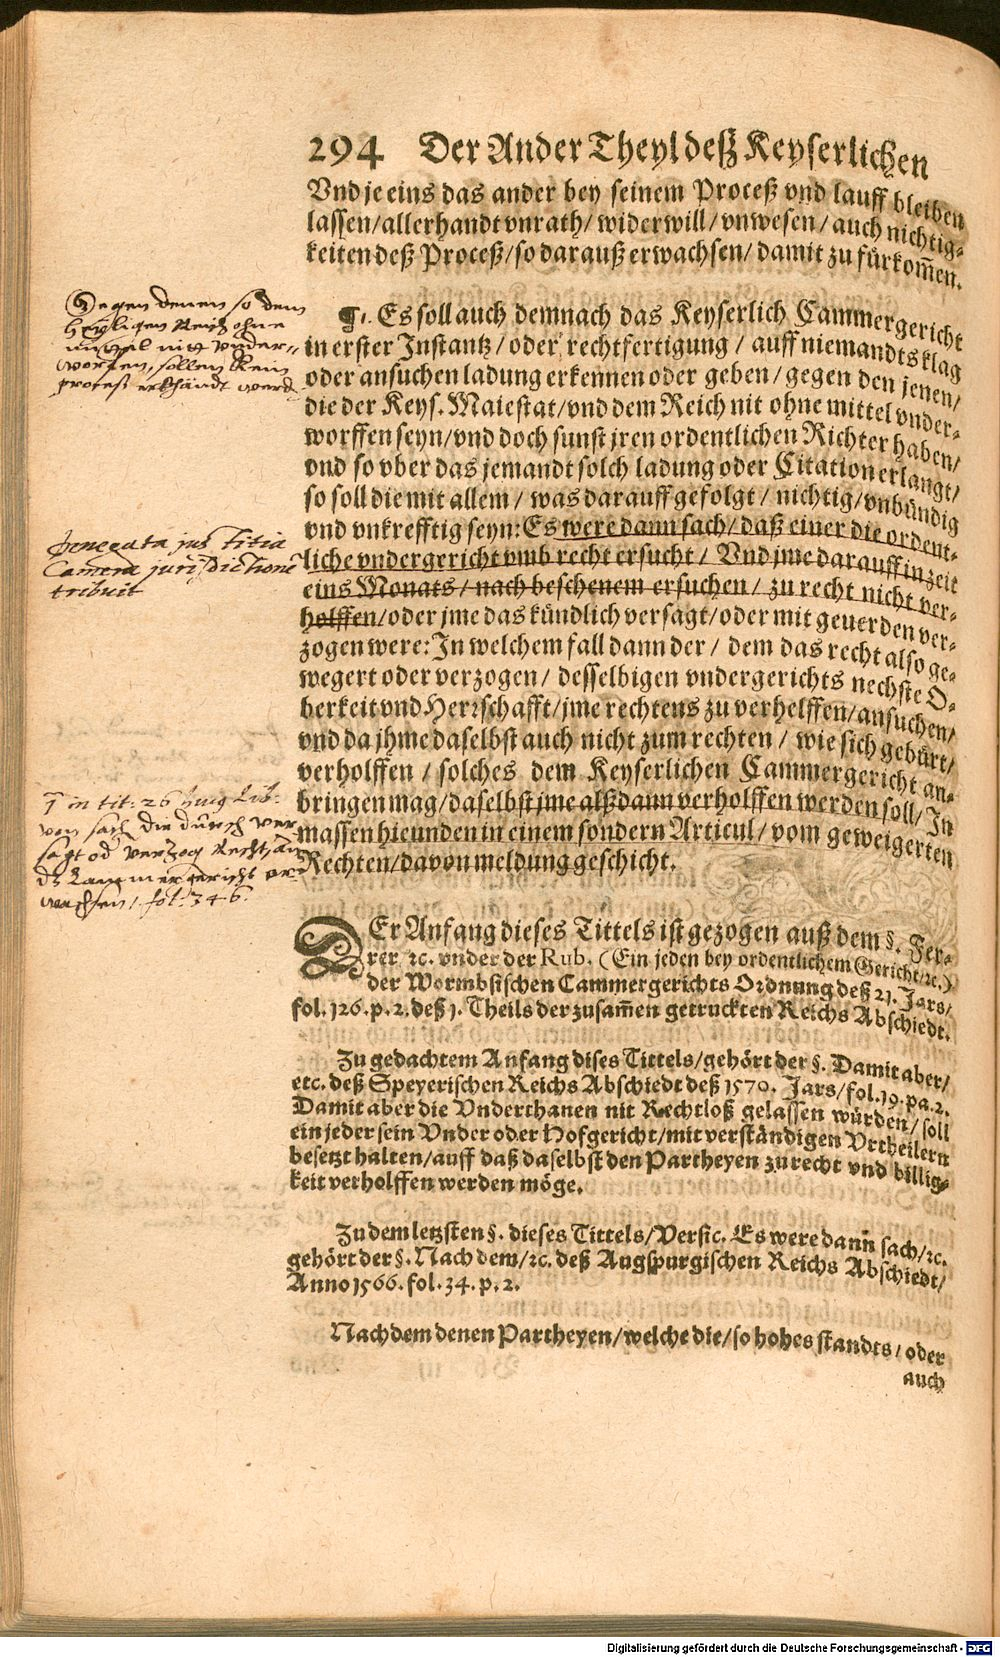 294 Der Ander Theyl deß Keyserlichen
Vnd je eins das ander bey seinem Proceß vnd lauff bleiben
lassen/allerhandt vnrath/ widerwill/ vnwesen/ auch nichtig-
keiten deß Proceß/so darauß erwachsen/ damit zu fürkom̃en.
Gegen denen so dem
heyligen Reich ohne
mittel nit vnder-
worffen, sollen kein
proceß erkhandt werd
¶. Es soll auch demnach das Keyserlich Cammergericht
in erster Instantz/ oder rechtfertigung / auff niemandts klag
oder ansuchen ladung erkennen oder geben/ gegen den jenen/
die der Keys. Maiestat/vnd dem Reich nit ohne mittel vnder-
worffen seyn/vnd doch sunst jren ordentlichen Richter haben/
vnd so vber das jemandt solch ladung oder Citation erlangt/
so soll die mit allem / was darauff gefolgt / nichtig/vnbündig
vnd vnkrefftig seyn: Es were dann sach/ daß einer die ordent-
liche vndergericht vmb recht ersucht / Vnd jme darauff in zeit
eins Monats/ nach beschenem ersuchen/ zu recht nicht ver-
holffen/oder jme das kündlich versagt/oder mit geuerden ver-
zogen were: In welchem fall dann der / dem das recht also ge-
wegert oder verzogen/ desselbigen vndergerichts nechste O-
berkeit vnd Herrschafft/jme rechtens zu verhelffen/ansuchen/
vnd da jhme daselbst auch nicht zum rechten / wie sich gebürt/
verholffen / solches dem Keyserlichen Cammergericht an-
bringen mag/daselbst jme alßdann verholffen werden soll/ In
massen hieunden in einem sondern Articul/ vom geweigerten
Rechten/davon meldung geschicht.
Denegata justitia
Camerae jurisdictione
tribuit
in tit: 26 huius lib:
von sach die durch ver
sagt od verzog Rechts, an
dz Cammergericht er
wachsen/. fol: 346.
DEr Anfang dieses Tittels ist gezogen auß dem §. Fer-
rer ꝛc. vnder der Rub. (Ein jeden bey ordentlichem Gericht/ꝛc.)
der Wormbsischen Cammergerichts Ordnung deß 21. Jars/
fol. 126. p. 2. deß 1. Theils der zusam̃en getruckten Reichs Abschiedt.
Zu gedachtem Anfang dises Tittels/gehört der §. Damit aber/
etc. deß Speyerischen Reichs Abschiedt deß 1570. Jars/fol. 19. pa. 2.
Damit aber die Vnderthanen nit Rechtloß gelassen würden/ soll
ein jeder sein Vnder oder Hofgericht/mit verständigen Vrtheilern
besetzt halten/auff daß daselbst den Partheyen zu recht vnd billig-
keit verholffen werden möge.
Zu dem letzsten §. dieses Tittels/Versic. Es were dann sach/ꝛc.
gehört der §. Nach dem/ꝛc. deß Augspurgischen Reichs Abschiedt/
Anno 1566. fol. 34. p. 2.
Nachdem denen Partheyen/welche die/so hohes standts/ oder
auch
Digitalisierung gefördert durch die Deutsche Forschungsgemeinschaft - DFG